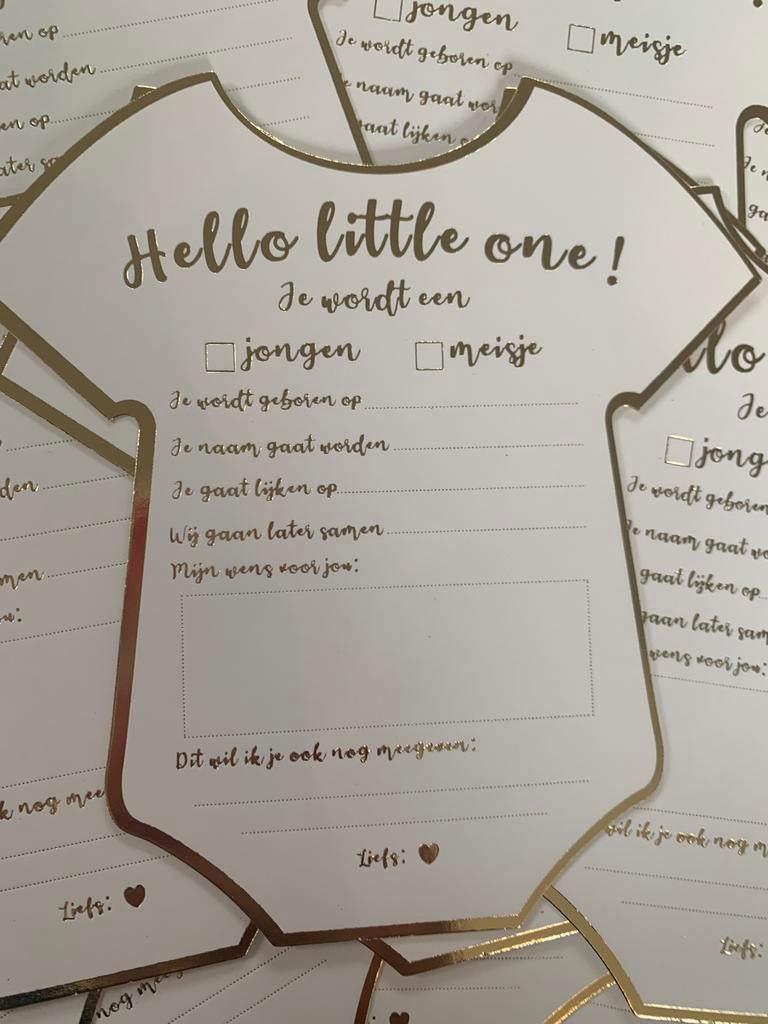 jongen
meisje
Je wordt geboren op
naam gaat wor
gaat lijken o
en op
at worden
en op
Hello little one!
Je wordt een
jongen meisje
Je wordt geboren op
Je naam gaat worden
Je gaat lijken op
Wij gaan later samen
Mijn wens voor jou:
Dit wil ik je ook nog meegeven:
Liefs:
den
men
k nog mee
Liefs:
nog me
llo
Je
jong
Je wordt geboren
Je naam gaat wo
gaat lijken op
gaan later sam
wens voor jou:
wil ik je ook nog m
Liefs: